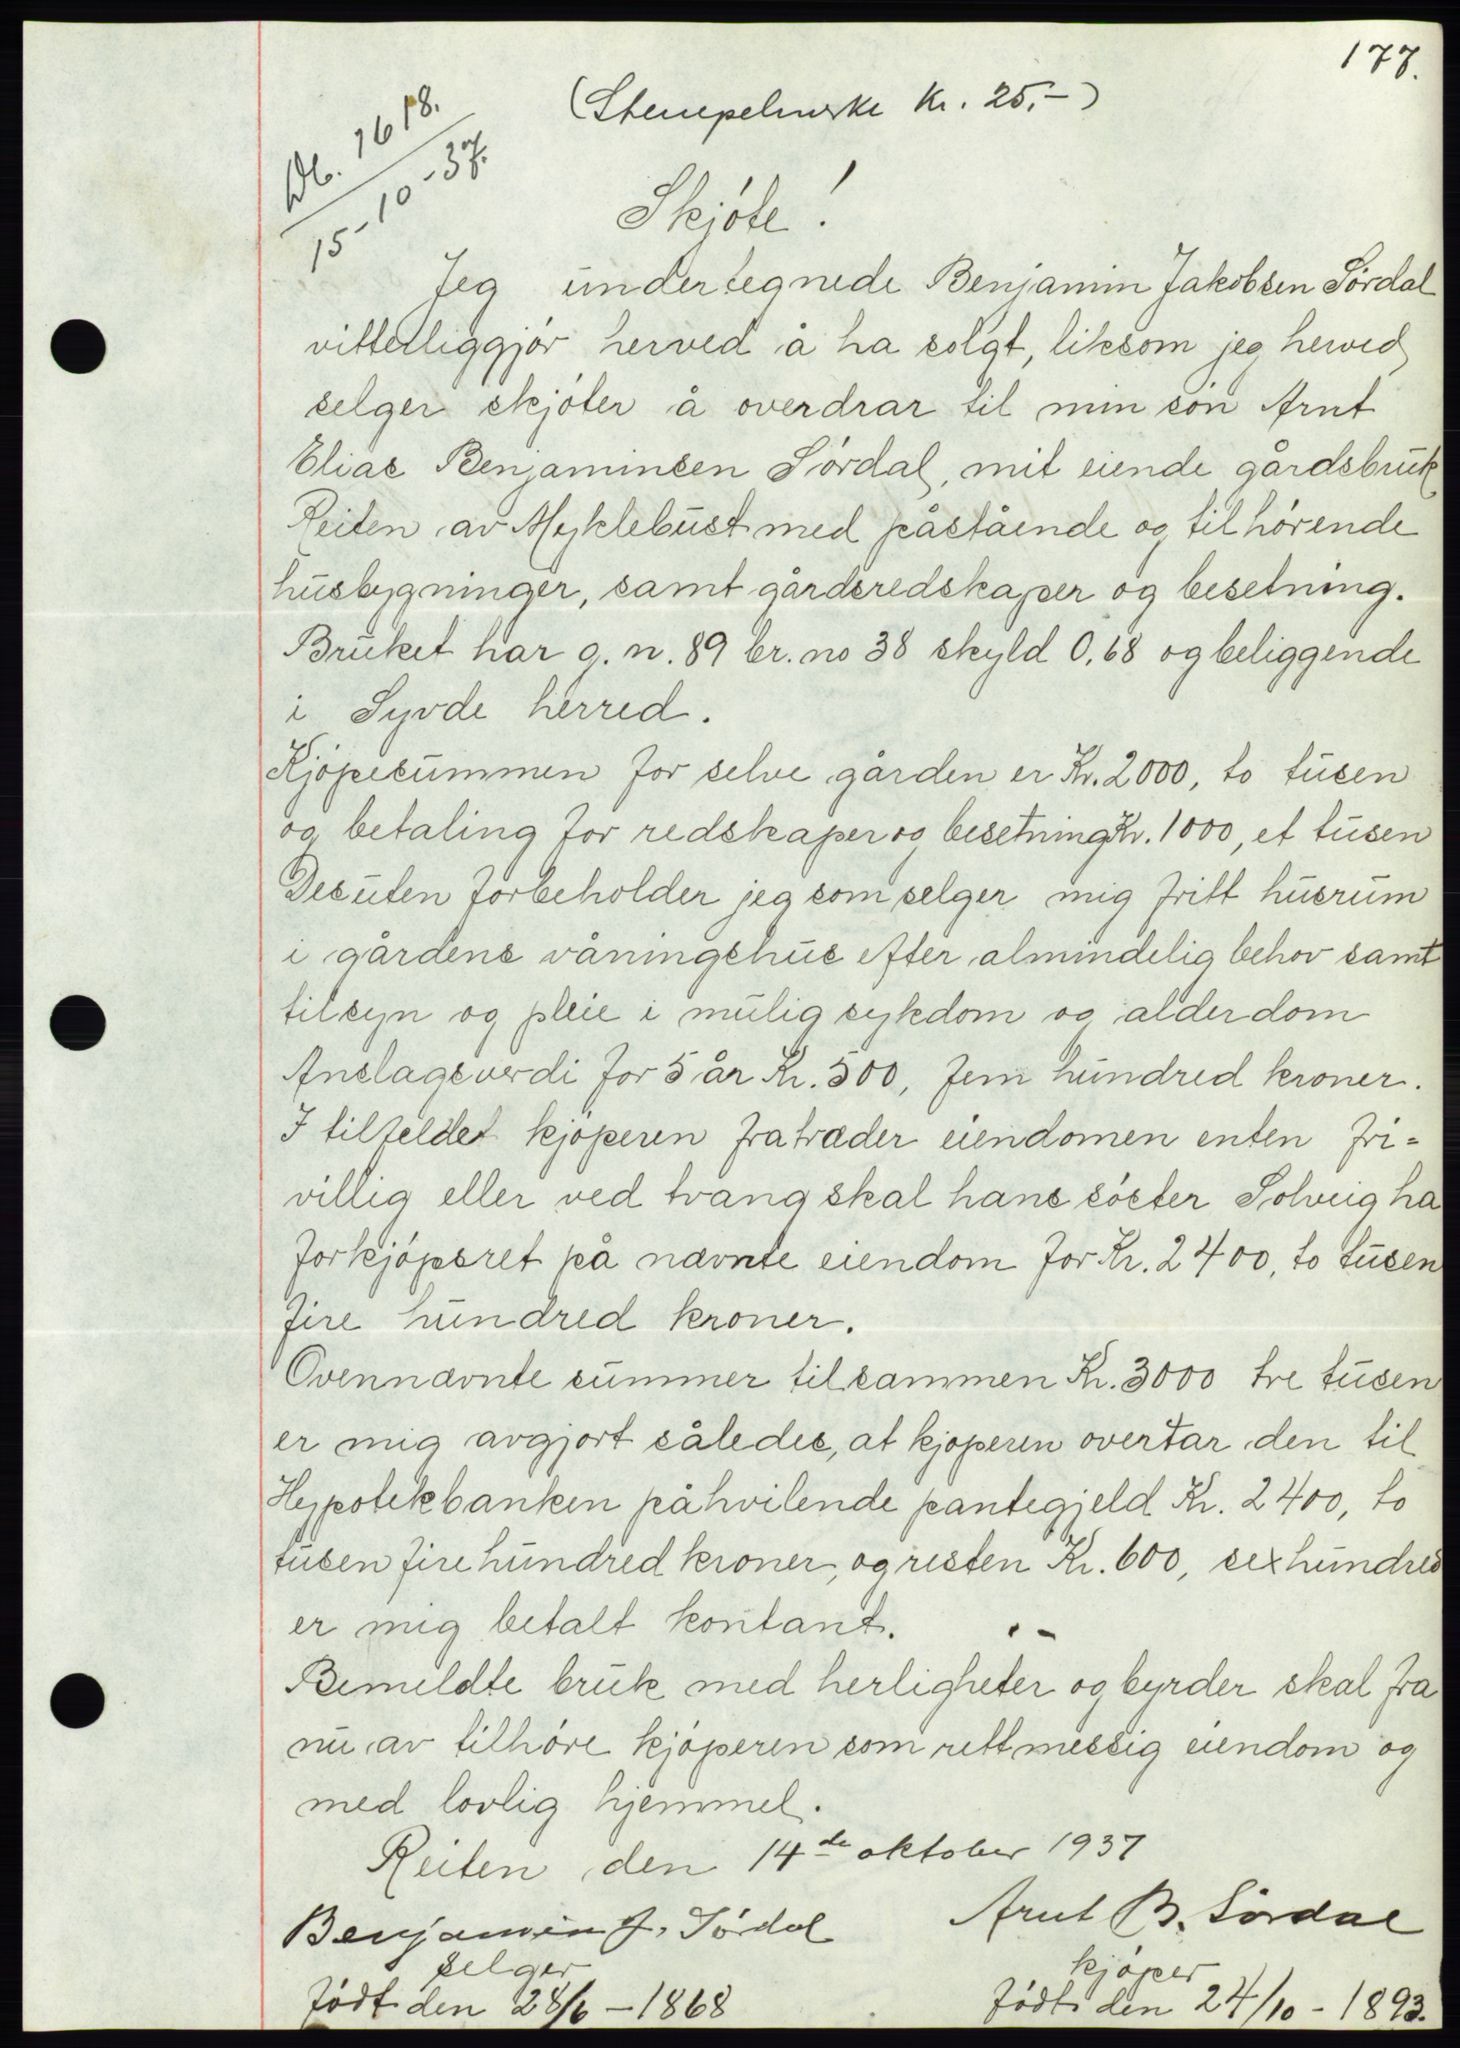 177.
(Stempelmerke kr. 25,-)
Db. 1618.
15-10-37.
Skjóte!
Jeg undertegnede Benjamin Jakobsen Sórdal
vitterliggjór herved å ha solgt, liksom jeg herved
selger skjóter å overdrar til min són Arnt
Elias Benjaminsen Sórdal, mit eiende gårdsbruk
Reiten av Myklebust med påstående og tilhórende
husbygninger, samt gårdsredskaper og besetning.
Bruket har g. n. 89 br. no 38 skyld 0,68 og beliggende
i Syvde herred.
Kjópesummen for selve gården er Kr. 2000, to tusen
og betaling for redskaper og besetning Kr. 1000, et tusen
Desuten forbeholder jeg som selger mig fritt husrum
i gårdens våningshus efter almindelig behov samt
tilsyn og pleie i mulig sykdom og alderdom
Anslagsverdi for 5 år Kr. 500, fem hundred kroner.
I tilfeldet kjóperen fratræder eiendomen enten fri=
villig eller ved tvang skal hans sóster Solveig ha
forkjópsret på nævnte eiendom for Kr. 2400, to tusen
fire hundred kroner.
Ovennævnte summer tilsammen Kr. 3000 tre tusen
er mig avgjort således, at kjoperen overtar den til
Hypotekbanken påhvilende pantegjeld Kr. 2400, to
tusen fire hundred kroner, og resten Kr. 600, sex hundred
er mig betalt kontant.
Bemeldte bruk med herligheter og byrder skal fra
nu av tilhóre kjóperen som rettmessig eiendom og
med lovlig hjemmel.
Reiten den 14de oktober 1937
Benjamin J. Sórdal
selger
fódt den 28/6 - 1868
Arnt B. Sórdal
kjóper
fódt den 24/10 - 1893.